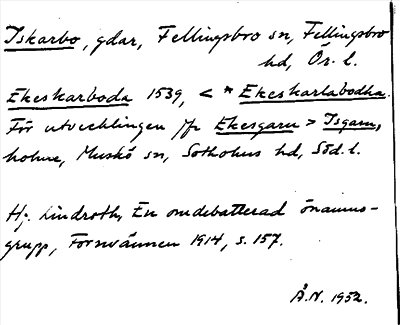 Iskarbo, gdar, Fellingsbro sn, Fellingsbro
hd, Ör. l.
Ekeskarboda 1539, < *Ekeskarlabodha.
För utvecklingen jfr Ekesgarn > Isgarn,
holme, Muskö sn, Sotholms hd, Söd. l.
Hj. Lindroth, En omdebatterad önamns-
grupp, Fornvännen 1914, s. 157.
Å.N. 1952.